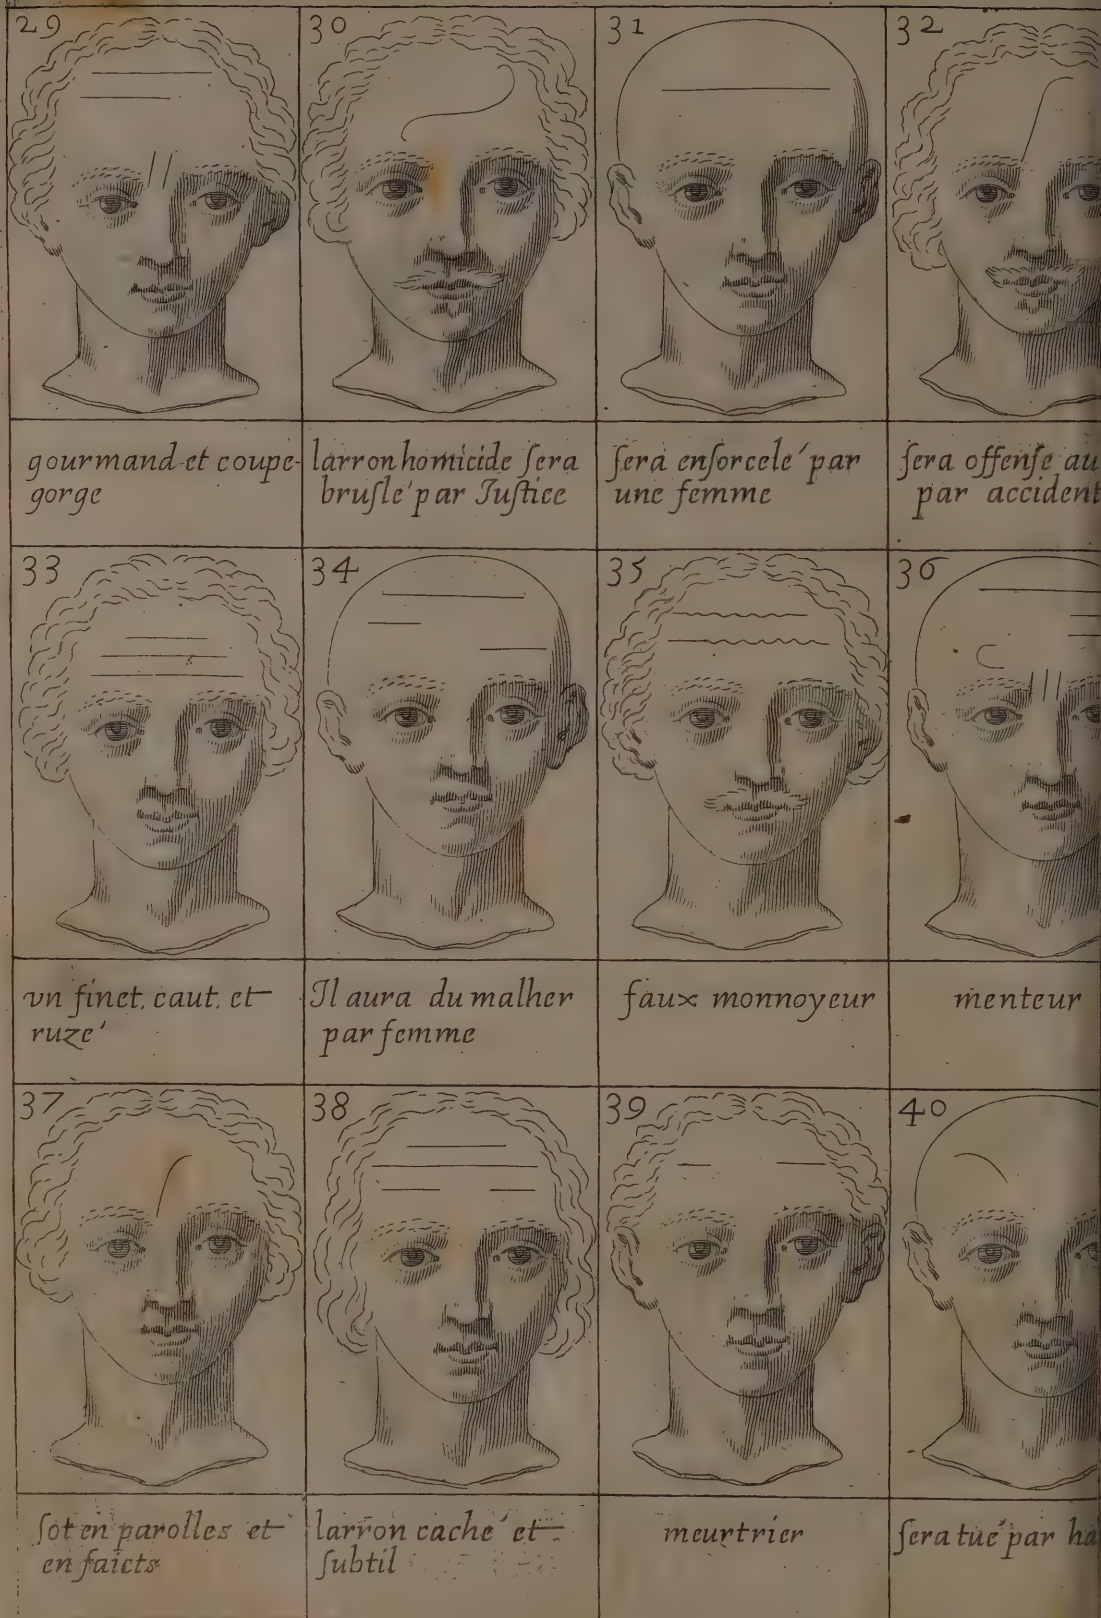 29
30
31
32
gourmand et coupe-
gorge
larron homicide ſera
bruſle' par Juſtice
ſera enſorcele' par
une femme
ſera offenſe au
par accident
33
34
35
36
vn finet. caut. et
ruze'
Il aura du malher
par femme
faux monnoyeur
menteur
37
38
39
40
ſot en parolles et
en faicts
larron cache' et
ſubtil
meurtrier
ſera tue' par ha